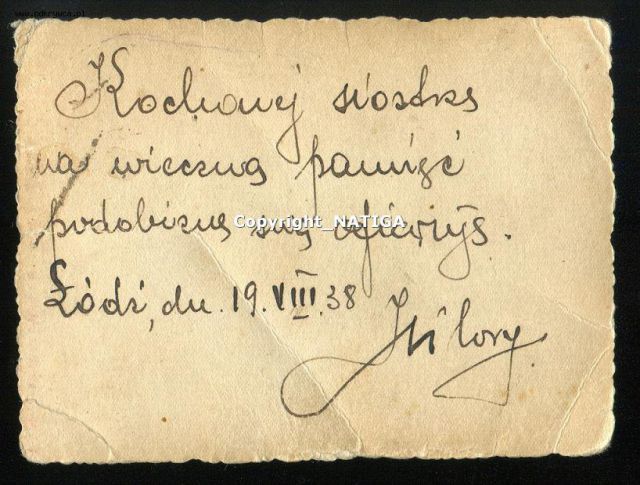 www.odkrywca.pl
Kochanej siostrze
na wieczną pamięć
podobiznę swą ofiaruję.
Copyright_NATIGA
Łódź, dn. 19.VIII.38